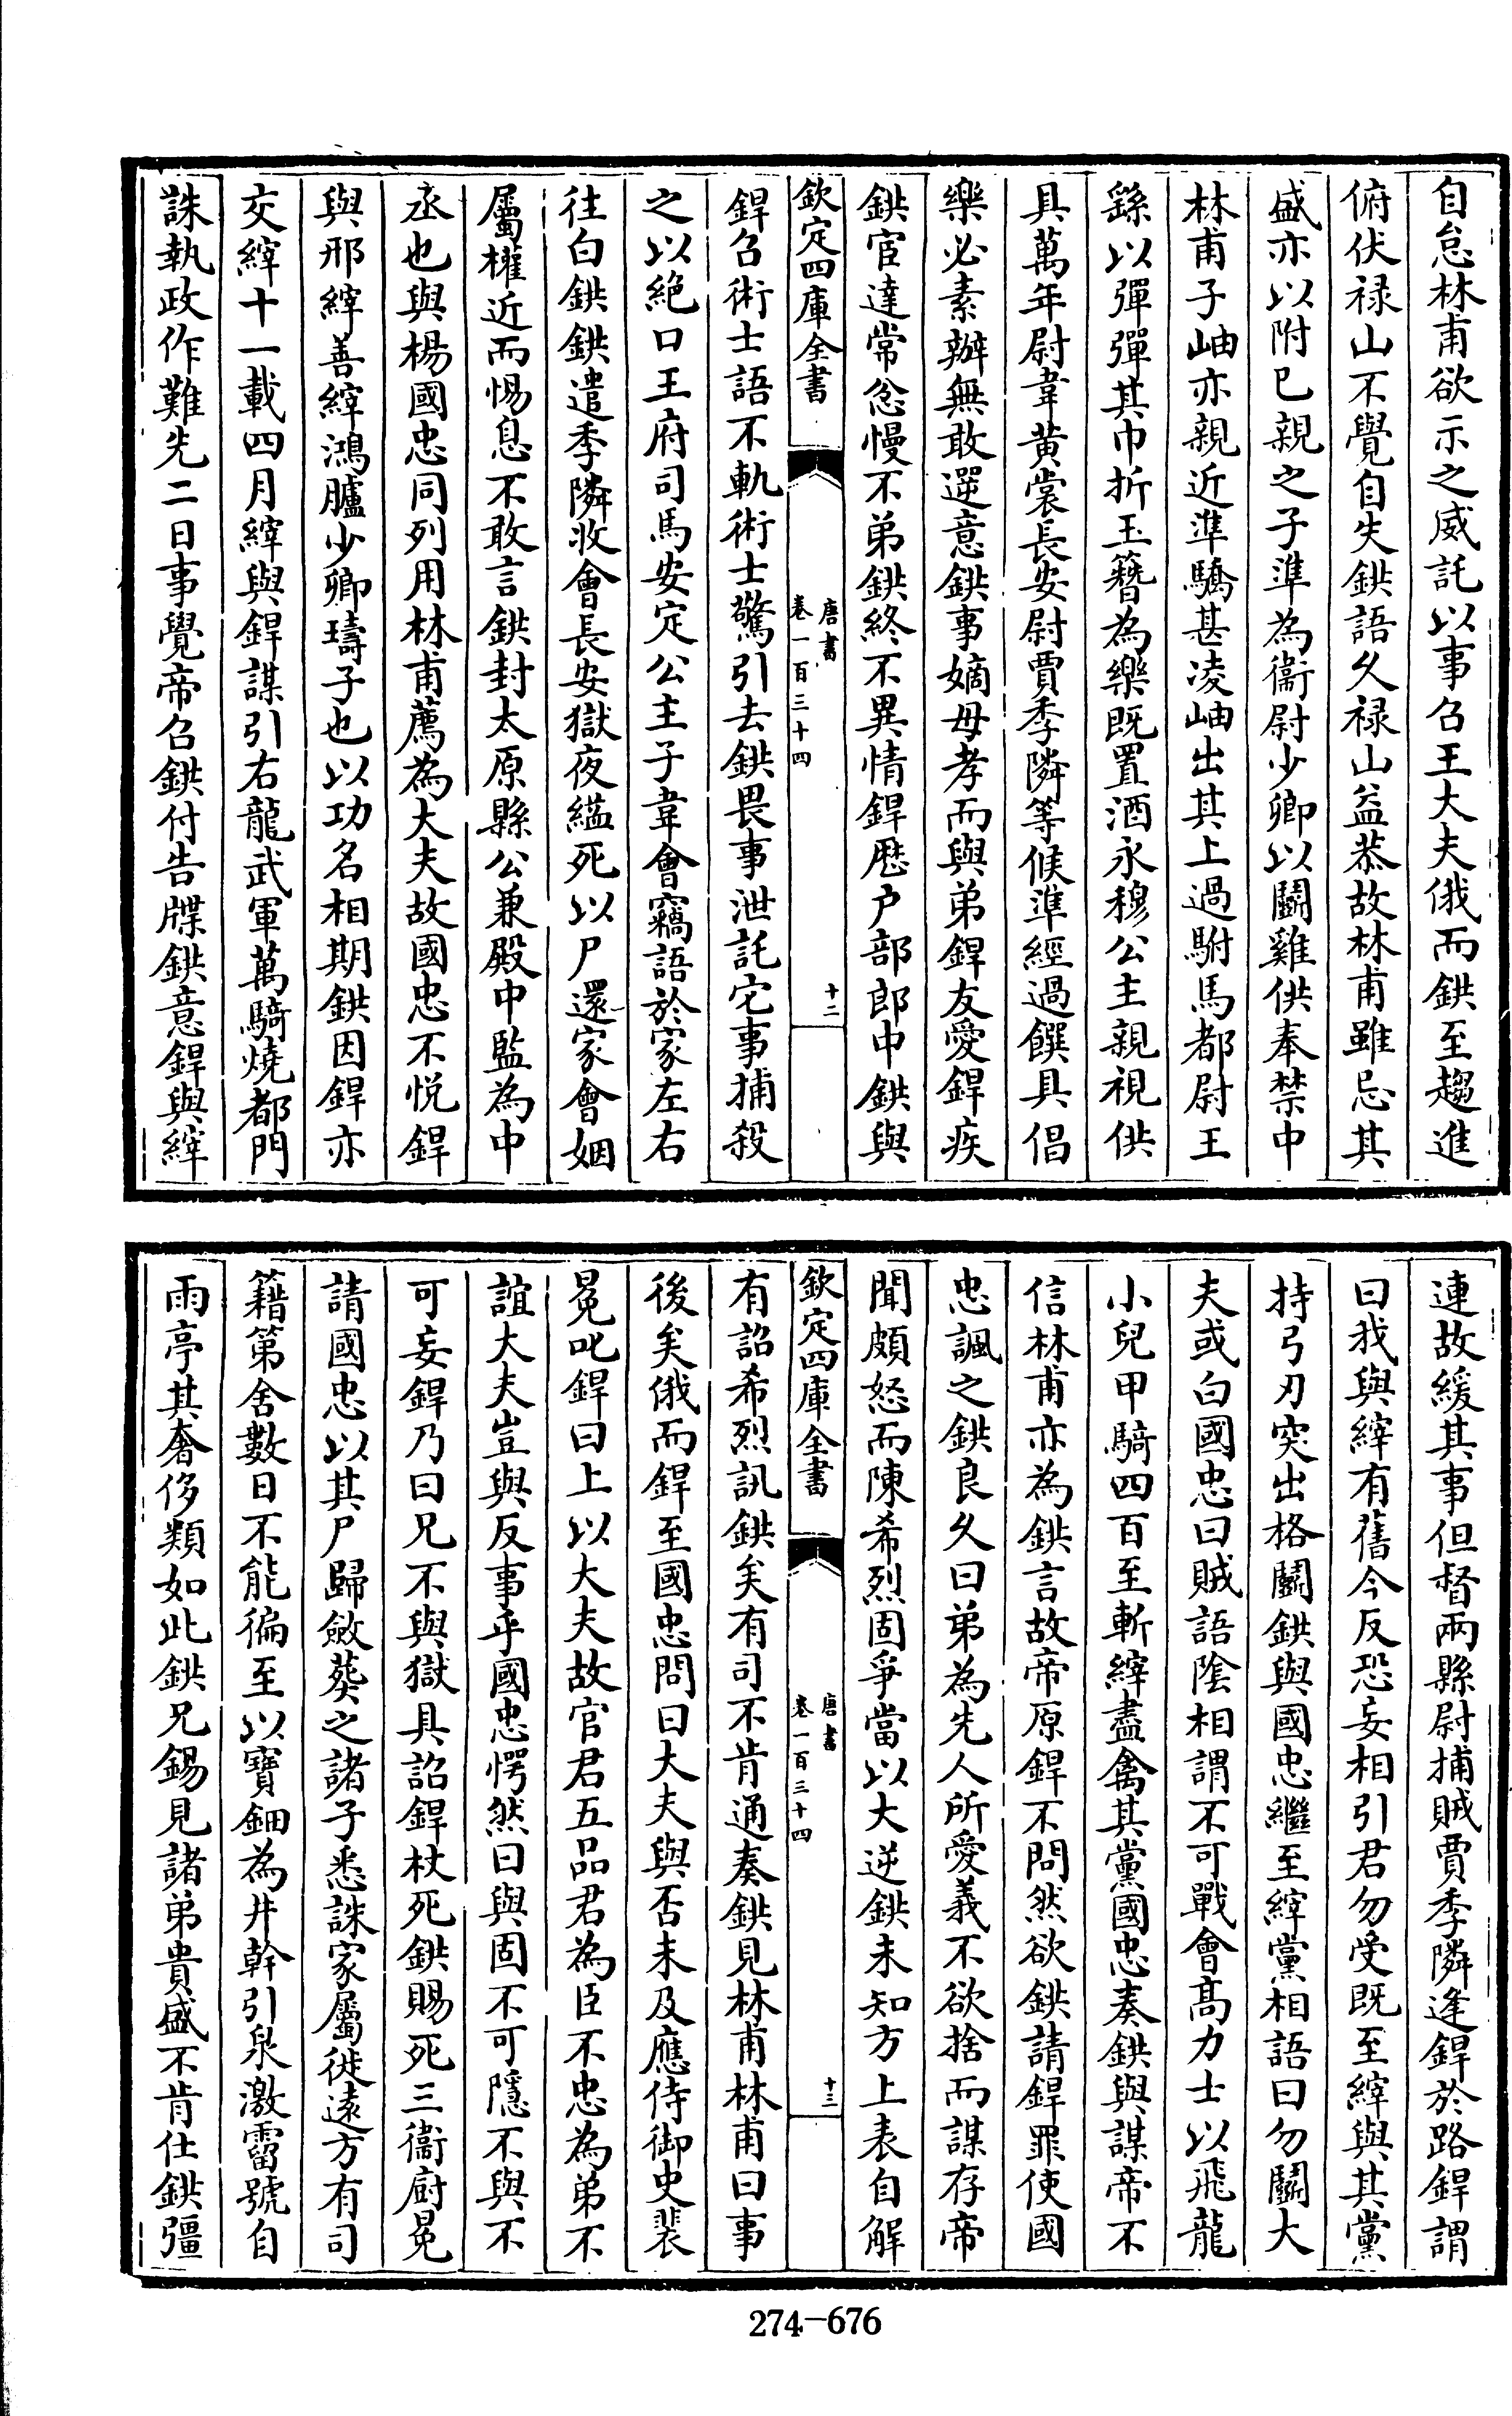 自怠林甫欲示之威託以事召王大夫俄而鉷至趨進
俯伏禄山不覺自失鉷語久禄山益恭故林甫雖忌其
盛亦以附已親之子準為衞尉少卿以鬭雞供奉禁中
林甫子岫亦親近準驕甚凌岫出其上過駙馬都尉王
繇以彈彈其巾折玉簪為樂既置酒永穆公主親視供
具萬年尉韋黄裳長安尉賈季隣等候準經過饌具倡
樂必素辦無敢逆意鉷事嫡母孝而與弟銲友愛銲疾
鉷宦達常忿慢不弟鉷終不異情銲歴户部郎中鉷與
欽定四庫全書
唐書
卷一百三十四
十二
銲召術士語不軌術士驚引去鉷畏事泄託它事捕殺
之以絶口王府司馬安定公主子韋會竊語於家左右
往白鉷鉷遣季隣收會長安獄夜縊死以尸還家會姻
屬權近而惕息不敢言鉷封太原縣公兼殿中監為中
丞也與楊國忠同列用林甫薦為大夫故國忠不悦銲
與邢縡善縡鴻臚少卿璹子也以功名相期鉷因銲亦
交縡十一載四月縡與銲謀引右龍武軍萬騎燒都門
誅執政作難先二日事覺帝召鉷付告牒鉷意銲與縡
連故緩其事但督兩縣尉捕賊賈季隣逢銲於路銲謂
曰我與縡有舊今反恐妄相引君勿受既至縡與其黨
持弓刃突出格鬭鉷與國忠繼至縡黨相語曰勿鬭大
夫或白國忠曰賊語隂相謂不可戰會髙力士以飛龍
小兒甲騎四百至斬縡盡禽其黨國忠奏鉷與謀帝不
信林甫亦為鉷言故帝原銲不問然欲鉷請銲罪使國
忠諷之鉷良久曰弟為先人所愛義不欲捨而謀存帝
聞頗怒而陳希烈固爭當以大逆鉷未知方上表自解
欽定四庫全書
唐書
卷一百三十四
十三
有詔希烈訊鉷矣有司不肯通奏鉷見林甫林甫曰事
後矣俄而銲至國忠問曰大夫與否未及應侍御史裴
冕叱銲曰上以大夫故官君五品君為臣不忠為弟不
誼大夫豈與反事乎國忠愕然曰與固不可隱不與不
可妄銲乃曰兄不與獄具詔銲杖死鉷賜死三衞厨冕
請國忠以其尸歸斂葬之諸子悉誅家屬徙遠方有司
籍第舍數日不能徧至以寶鈿為井幹引泉激霤號自
雨亭其奢侈類如此鉷兄錫見諸弟貴盛不肯仕鉷彊
274-676